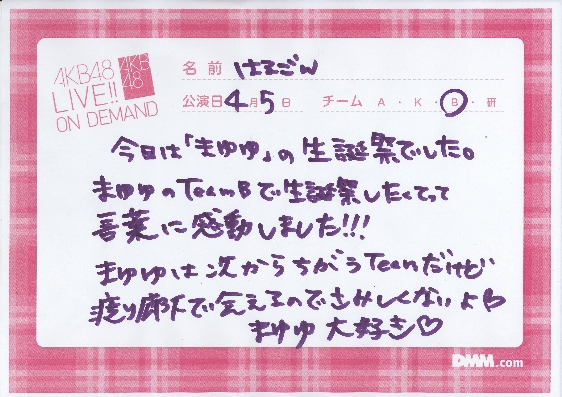 AKB48
LIVE!!
ON DEMAND
AKB
48
名前 はるごん
公演日 4月5日 チーム A・K・B・研
今日は「まゆゆ」の生誕祭でした。
まゆゆのTeamBで生誕祭したくてって
言葉に感動しました!!!
まゆゆは次からちがうTeamだけど
廊下で会えるのでさみしくないよ♡
まゆゆ大好き♡
DMM.com